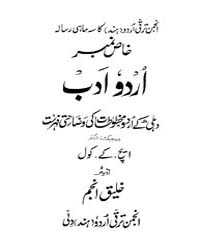 انجمن ترقّی اُردو (ہند) کا سہ ماہی رسالہ
خاص نمبر
اُردو ادب
دہلی کے اُردو مخطوطات کی وضاحتی فہرست
ایچ . کے . کول
خلیق انجم
انجمن ترقّی اُردو (ہند) دلّی